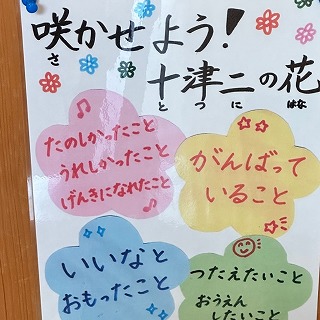 咲かせよう!
さ
十津二の花
とつに はな
たのしかったこと
うれしかったこと
げんきになれたこと
がんばって
いること
いいなと
おもったこと
つたえたいこと
おうえん
したいこと